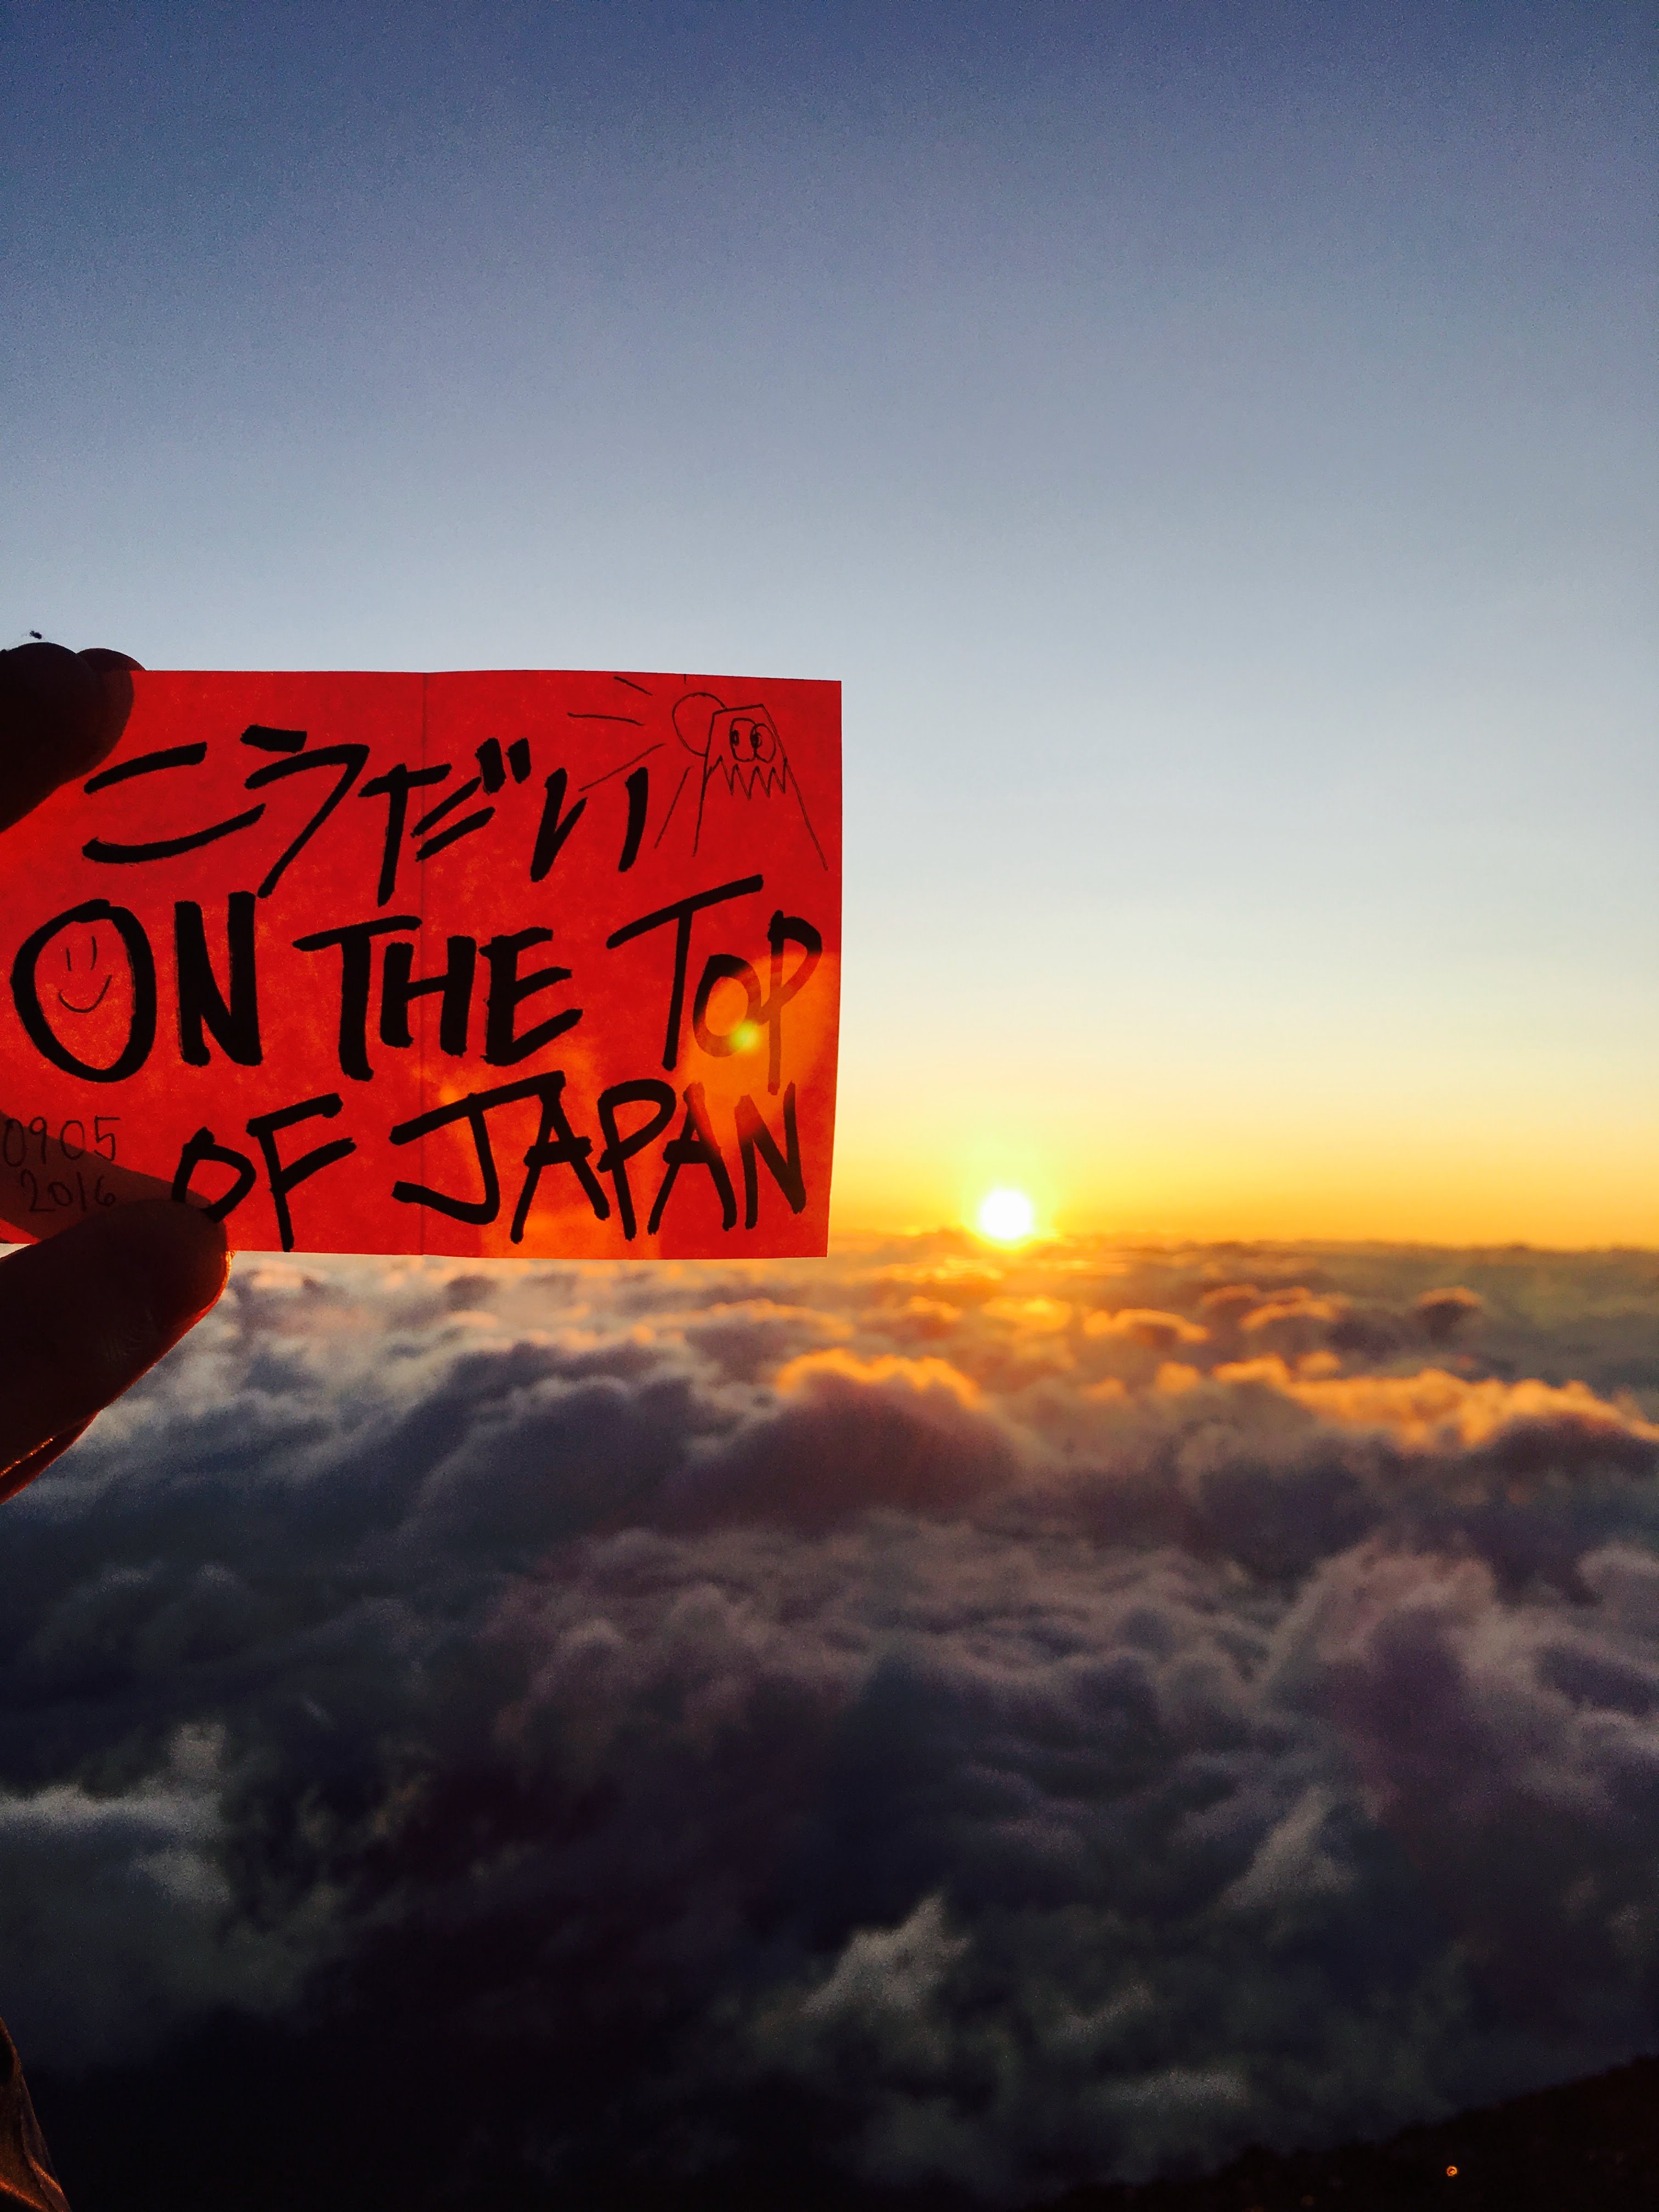 こうだい
ON THE TOP
OF JAPAN
0905
2016